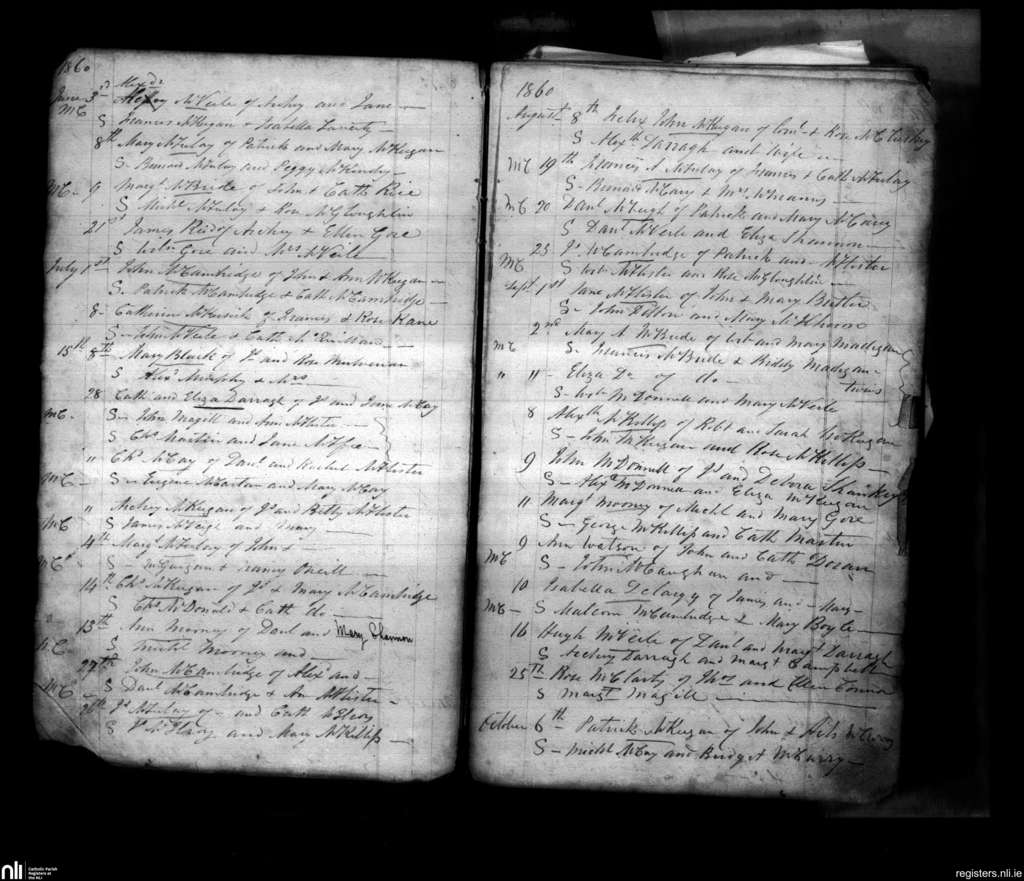 1860
Alexdr
June 3rd McNeile of Archy and Jane —
MC S Francis McKeegan & Isabella Laverty —
8th Mary McAulay of Patrick and Mary McKeegan
S. Bernard McAulay and Peggy McKinley —
MC. 9 Margt McBride of John & Cath Rice
S Michl McAulay & Rose McGloughlin
21st James Reid of Archy & Ellen Gore
S Wm Gore and Mrs McNeile
July 1st John McCambridge of John & Ann McKeegan —
S. Patrick McCambridge & Cath McCambridge —
8 — Catherine of Francis & Rose Kane
S — John McNeile & Cath
15th 8th Mary Black of Js and Rose Mulvenna
S Alexr Murphy & Mrs —
28 Cath and Eliza Darragh of Js and Jane McCay
MC. S — John Magill and Ann McAlister —
S Chs Martin and Jane
" Chs McCay of Danl and Rachel McAlister
MC — S — Eugene McCartan and Mary McCay
" Archy McKeegan of Js and Betty McAlister
MC S James McVeigh and Nancy —
4th Margt McAulay of John & —
MC S — McGuigan & Nancy Oneill —
14th Chs McKeegan of Js & Mary McCambridge
S Chs McDonald & Cath do —
15th Ann Mooney of Danl and Mary
MC. S Michl Mooney and —
27th John McCambridge of Alexr and —
MC — S Danl McCambridge & Ann McAlister —
Js McAulay of — and Cath McElroy
S Js McElroy and Mary McKillip —
1860
August 8th Felix John McKeegan of & Rose McCluskey
S Alexr Darragh and wife —
MC 19th Francis A. McAulay of Francis & Cath McAulay
S — Bernard McCary & Mrs —
MC 20 Danl McVeigh of Patrick and Mary McCarry
S Danl McNeile and Eliza Shannon —
23 Js McCambridge of Patrick and — McAlister
MC S Wm McAlister and Rose McGloughlin —
Sept. 1st Jane McAlister of John & Mary Butler
S — John Dillon and Mary
2nd Mary A McBride of Wm and Mary Madigan
MC S. Francis McBride & Biddy Madigan —
" " — Eliza Do of do — twins
S — Wm McDonnell and Mary McNeile
8 McKillip of Robt and Sarah McKeegan
S — John McKeegan and Rose McKillip —
9 John McDonnell of Js and Debora Sharkey
S — Alexr McDonnell and Eliza McKeegan
11 Margt Mooney of Michl and Mary Gore
S — George McKillip and Cath Martin
9 Ann Watson of John and Cath Doran
MC S — John McCaughan and —
10 Isabella Delargy of James and — Mary —
MC — S Malcom McCambridge & Mary Boyle —
16 Hugh McNeile of Danl and Margt Darragh
S Archy Darragh and Margt Campbell
25th Rose McClarty of Thos and Ellen Connor
S Margt Magill —
October 6th Patrick McKeegan of John & McCurry
S — Michl McCay and Bridget McCurry —
nli Catholic Parish
Registers at
the NLI
registers.nli.ie